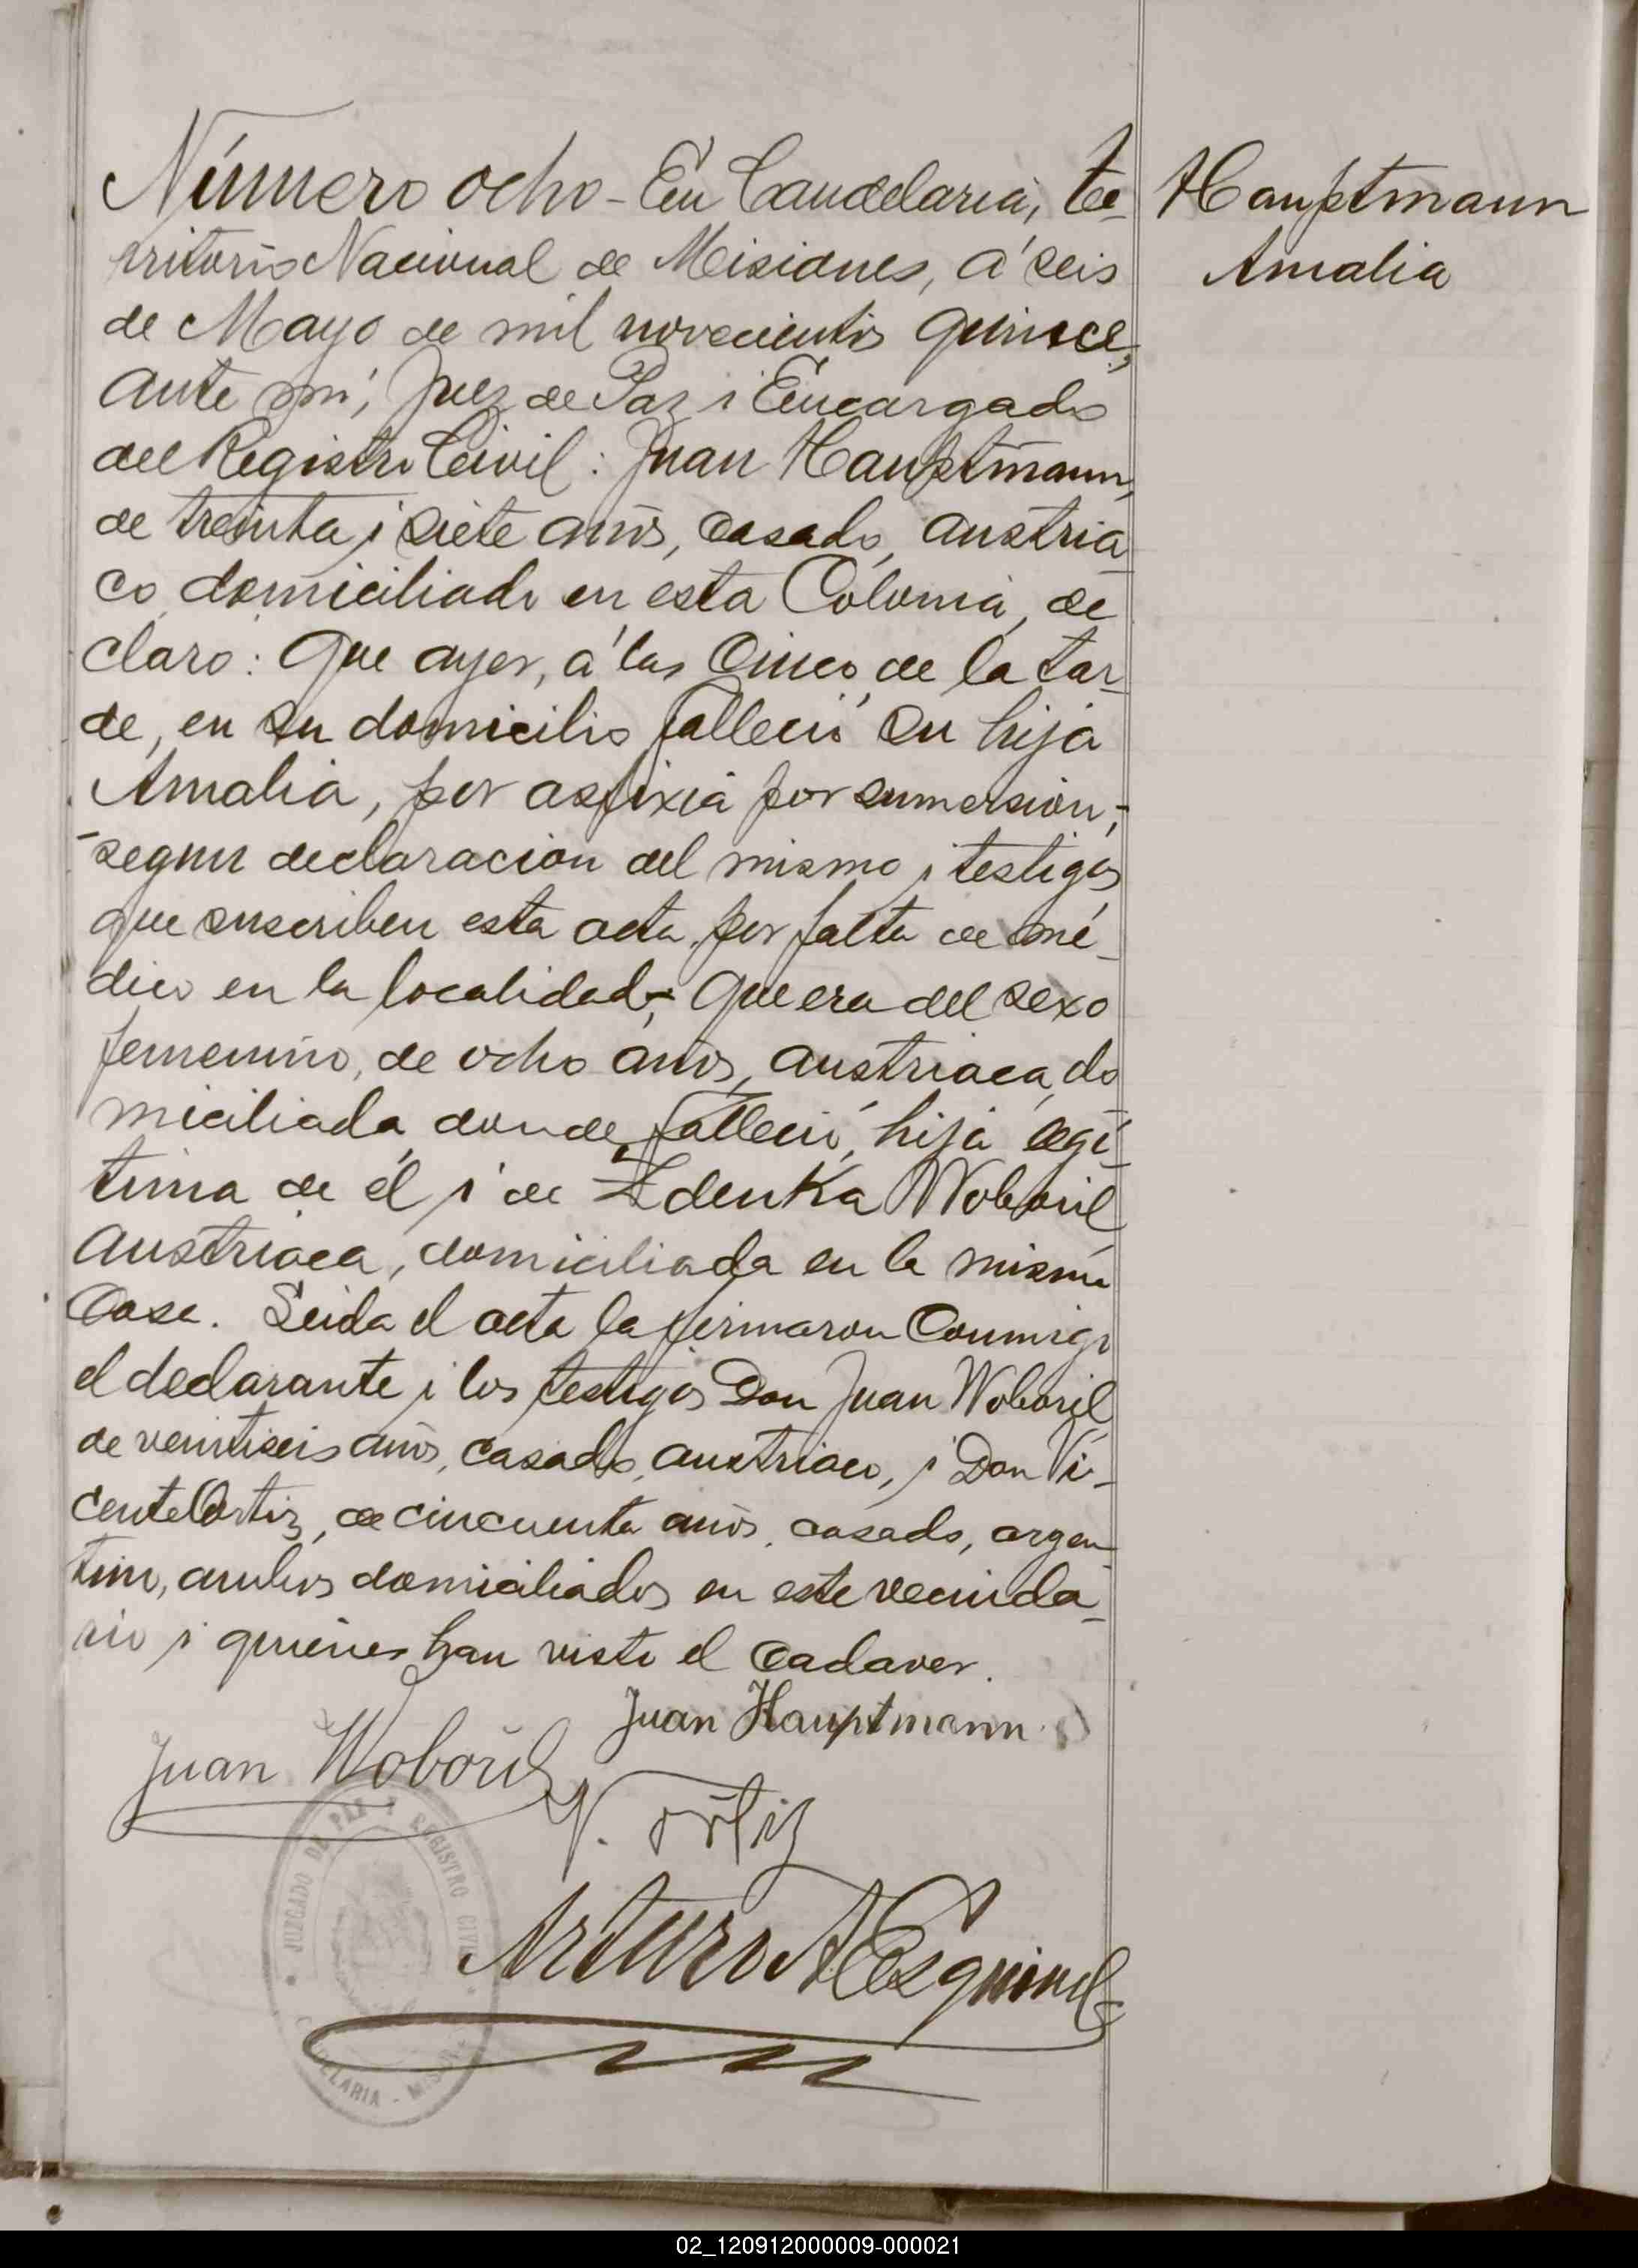 Número ocho - En Candelaria, te-
rritorio Nacional de Misiones, á seis
de Mayo de mil novecientos quince,
ante mí, Juez de Paz i Encargado
del Registro Civil: Juan Hauptmann,
de treinta i siete años, casado, austria
co domiciliado en esta Colonia, de
claró: Que ayer, á las cinco de la tar-
de, en su domicilio falleció su hija
Amalia, por asfixia por sumersion,-
-segun declaracion del mismo i testigos
que suscriben esta acta por falta de mé-
dico en la localidad; Que era del sexo
femenino, de ocho años, austriaca, do
miciliada donde falleció, hija legí-
tima de él i de Zdenka Woboril
austriaca, domiciliada en la misma
casa. Leida el acta la firmaron conmigo
el declarante i los testigos Don Juan Woboril
de veintiseis años, casado, austriaco, i Don Vi-
cente Ortiz, de cincuenta años, casado, argen-
tino, ambos domiciliados en este vecinda-
rio i quienes han visto el cadaver.
Juan Hauptmann
Juan Wobořil
V. Ortiz
Arturo A Esquivel
JUZGADO DE PAZ Y REGISTRO CIVIL
CANDELARIA - MISIONES
Hauptmann
Amalia
02_120912000009-000021